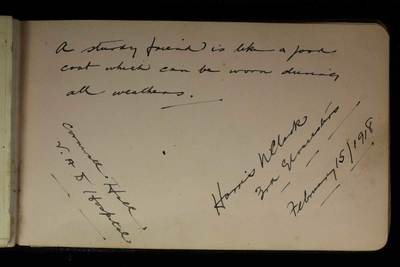 A sturdy friend is like a good
coat which can be worn during
all weathers.
Cornwall Hall
V.A.D Hospital
Harris N Clark
3rd Gloucesters
February 15/1918